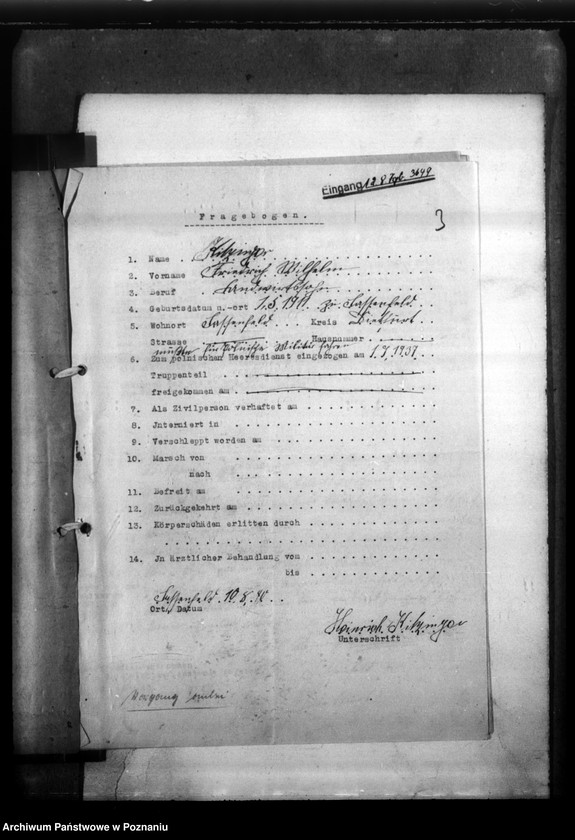 Eingang 12 9
3
Fragebogen.
1. Name . Kitzinger
2. Vorname Friedrich Wilhelm
3. Beruf . Landwirtssohn
4. Geburtsdatum u.-ort 1.5. zu Sassenfeld
5. Wohnort Sassenfeld . . Kreis Dietfurt
Strasse Hausnummer
mußte Militär
6. Zum polnischen Heeresdienst eingezogen am 1.7.1937.
Truppenteil
freigekommen am
7. Als Zivilperson verhaftet am
8. Jnterniert in
9. Verschleppt worden am
10. Marsch von
nach
11. Befreit am
12. Zurückgekehrt am
13. Körperschäden erlitten durch
14. Jn ärztlicher Behandlung von
bis
Sassenfeld. 10.8.40.
Ort, Datum
Heinrich Kitzinger
Unterschrift
Vorgang
Archiwum Państwowe w Poznaniu